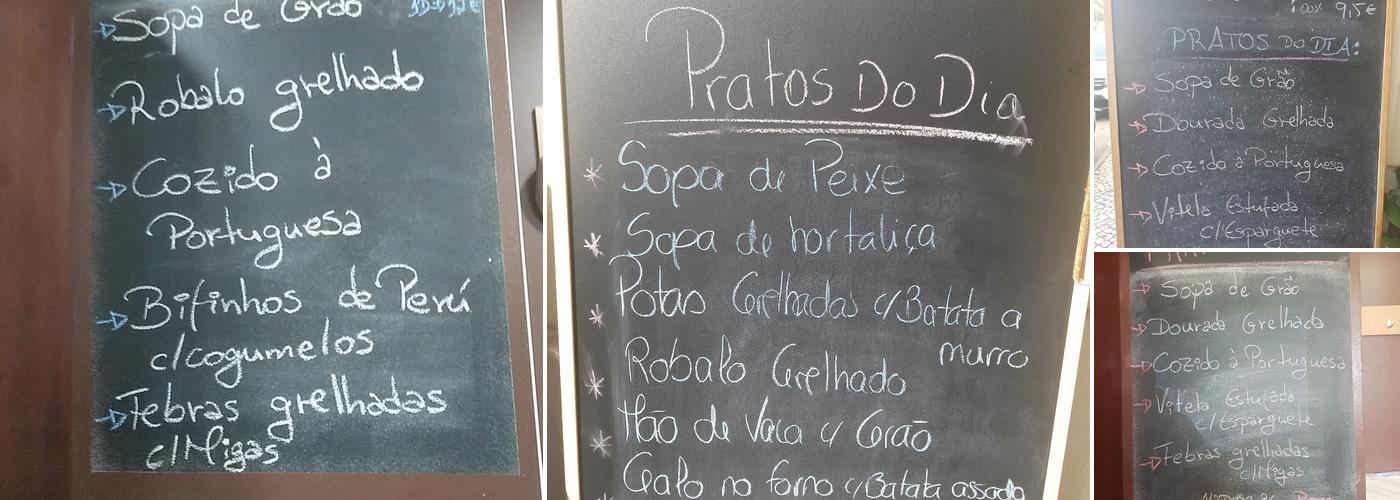 Sopa de Grão
Robalo grelhado
Cozido à
Portuguesa
Bifinhos de Perú
c/cogumelos
Febras grelhadas
c/Migas
Pratos Do Dia
Sopa de Peixe
Sopa de hortaliça
Potas Grelhadas c/Batata a
murro
Robalo Grelhado
Mão de Vaca c/ Grão
Galo no forno c/Batata assada
9,5€
PRATOS DO DIA:
Sopa de Grão
Dourada Grelhada
Cozido à Portuguesa
Vitela Estufada
c/Esparguete
Sopa de Grão
Dourada Grelhada
Cozido à Portuguesa
Vitela Estufada
c/Esparguete
Febras grelhadas
c/Migas